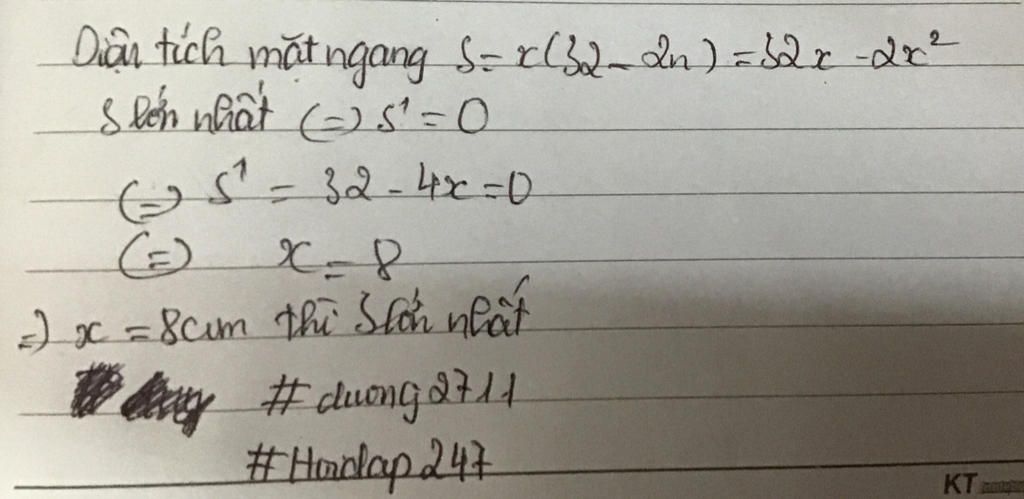 Diện tích mặt ngang S = x(32 - 2x) = 32x - 2x²
S lớn nhất (=) S' = 0
(=) S' = 32 - 4x = 0
(=) x = 8
=) x = 8cm thì S lớn nhất
#duong2711
#Hoidap247
KT